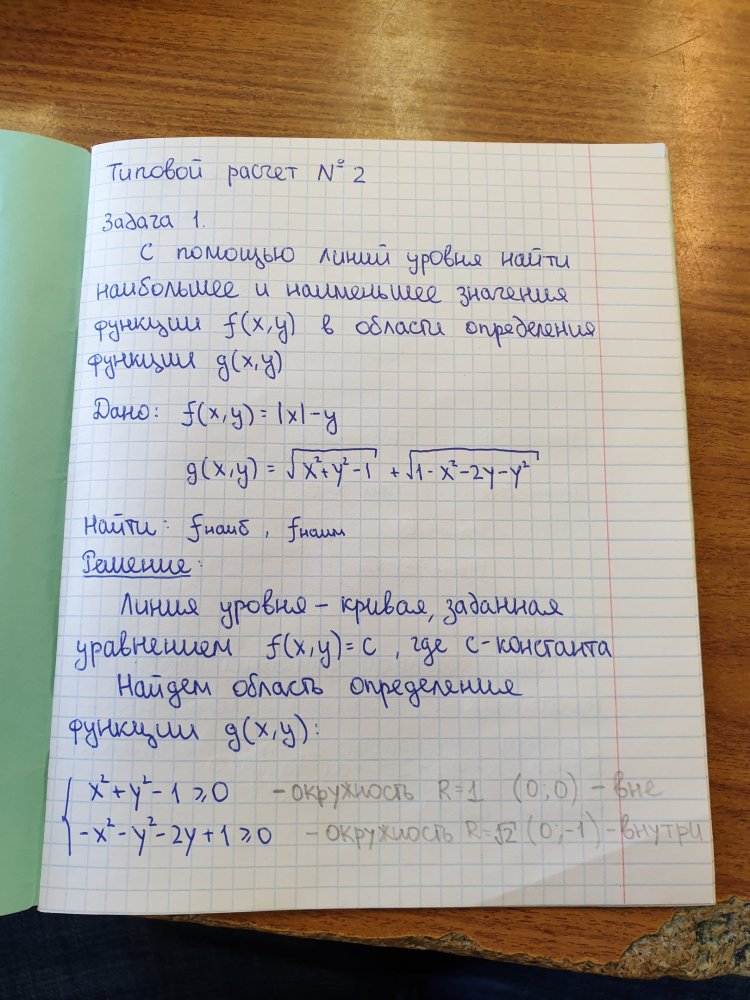 Типовой расчет №2
Задача 1.
С помощью линий уровня найти
наибольшее и наименьшее значения
функции f(x,y) в области определения
функции g(x,y)
Дано: f(x,y) = |x| - y
g(x,y) = √(x²+y²-1) + √(1-x²-2y-y²)
Найти: fнаиб, fнаим
Решение:
Линия уровня – кривая, заданная
уравнением f(x,y)=c, где c-константа
Найдем область определения
функции g(x,y):
{ x²+y²-1 ⩾ 0 - окружность R=1 (0;0) - вне
-x²-y²-2y+1 ⩾ 0 - окружность R=√2 (0;-1) - внутри